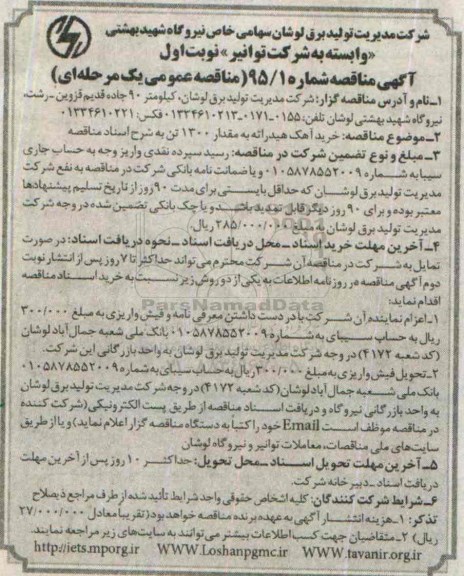 شرکت مدیریت تولید برق لوشان سهامی خاص نیروگاه شهید بهشتی
«وابسته به شرکت توانیر» نوبت اول
آگهی مناقصه شماره ۹۵/۱ (مناقصه عمومی یک مرحله‌ای)
۱ـ نام و آدرس مناقصه گزار: شرکت مدیریت تولید برق لوشان، کیلومتر ۹۰ جاده قدیم قزوین ـ رشت،
نیروگاه شهید بهشتی لوشان تلفن: ۰۱۵۵-۰۱۷۱-۰۱۳۳۴۶۱۰۲۱۳ فکس: ۰۱۳۳۴۶۱۰۲۲۱
۲ـ موضوع مناقصه: خرید آهک هیدراته به مقدار ۱۳۰۰ تن به شرح اسناد مناقصه
۳ـ مبلغ و نوع تضمین شرکت در مناقصه: رسید سپرده نقدی واریز وجه به حساب جاری
سیبا به شماره ۰۱۰۵۸۷۸۵۵۲۰۰۹ و یا ضمانت نامه بانکی شرکت در مناقصه به نفع شرکت
مدیریت تولید برق لوشان که حداقل بایستی برای مدت ۹۰ روز از تاریخ تسلیم پیشنهادها
معتبر بوده و برای ۹۰ روز دیگر قابل تمدید باشد و یا چک بانکی تضمین شده در وجه شرکت
مدیریت تولید برق لوشان به مبلغ ۲۸۵/۰۰۰/۰۰۰ ریال.
۴ـ آخرین مهلت خرید اسناد ـ محل دریافت اسناد ـ نحوه دریافت اسناد: در صورت
تمایل به شرکت در مناقصه آن شرکت محترم می‌تواند حداکثر تا ۷ روز پس از انتشار نوبت
دوم آگهی مناقصه در روزنامه اطلاعات به یکی از دو روش زیر نسبت به خرید اسناد مناقصه
اقدام نماید:
۱ـ اعزام نماینده آن شرکت با در دست داشتن معرفی نامه و فیش واریزی به مبلغ ۳۰۰/۰۰۰
ریال به حساب سیبای به شماره ۰۱۰۵۸۷۸۵۵۲۰۰۹ بانک ملی شعبه جمال آباد لوشان
(کد شعبه ۴۱۷۲) در وجه شرکت مدیریت تولید برق لوشان به واحد بازرگانی این شرکت.
۲ـ تحویل فیش واریزی به مبلغ ۳۰۰/۰۰۰ ریال به حساب سیبای به شماره ۰۱۰۵۸۷۸۵۵۲۰۰۹
بانک ملی شعبه جمال آباد لوشان (کد شعبه ۴۱۷۲) در وجه شرکت مدیریت تولید برق لوشان
به واحد بازرگانی نیروگاه و دریافت اسناد مناقصه از طریق پست الکترونیکی (شرکت کننده
در مناقصه موظف است Email خود را کتباً به دستگاه مناقصه گزار اعلام نماید) و یا از طریق
سایت‌های ملی مناقصات، معاملات توانیر و نیروگاه لوشان
۵ـ آخرین مهلت تحویل اسناد ـ محل تحویل: حداکثر ۱۰ روز پس از آخرین مهلت
دریافت اسناد ـ دبیرخانه شرکت.
۶ـ شرایط شرکت کنندگان: کلیه اشخاص حقوقی واجد شرایط تأئید شده از طرف مراجع ذیصلاح
تذکر: ۱ـ هزینه انتشار آگهی به عهده برنده مناقصه خواهد بود (تقریبا معادل ۲۷/۰۰۰/۰۰۰
ریال) ۲ـ متقاضیان جهت کسب اطلاعات بیشتر می‌توانند به سایت‌های زیر مراجعه نمایند.
http://iets.mporg.ir WWW.Loshanpgmc.ir WWW.tavanir.org.ir
ParsNamadData